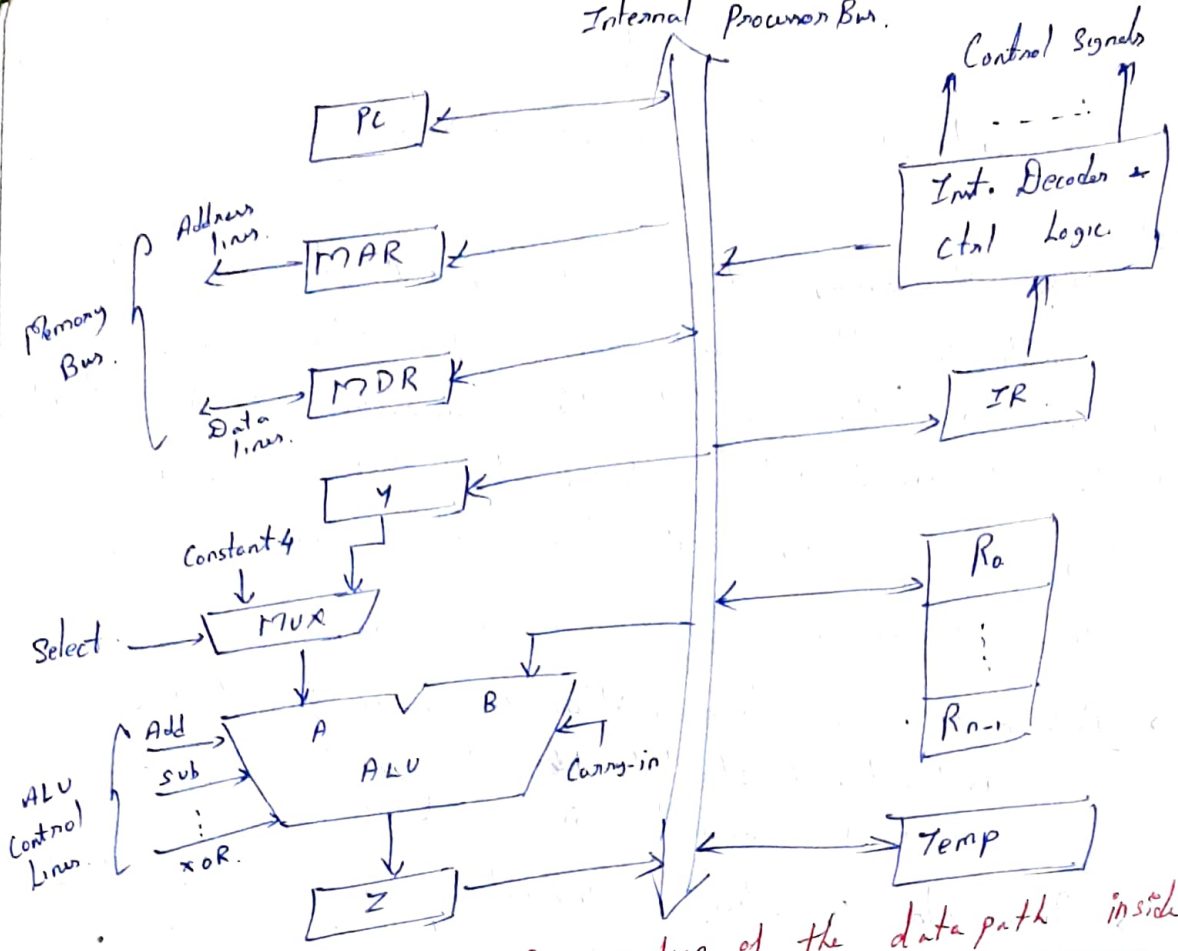 Internal Processor Bus.
Control Signals
PC
Inst. Decoder +
Ctrl Logic.
Address
lines.
MAR
Memory
Bus.
MDR
Data
lines.
IR
Y
Constant 4
R0
MUX
Select
A
B
Rn-1
Add
Sub
XOR.
ALU
Carry-in
ALU
Control
Lines.
Temp
Z
of the data path inside